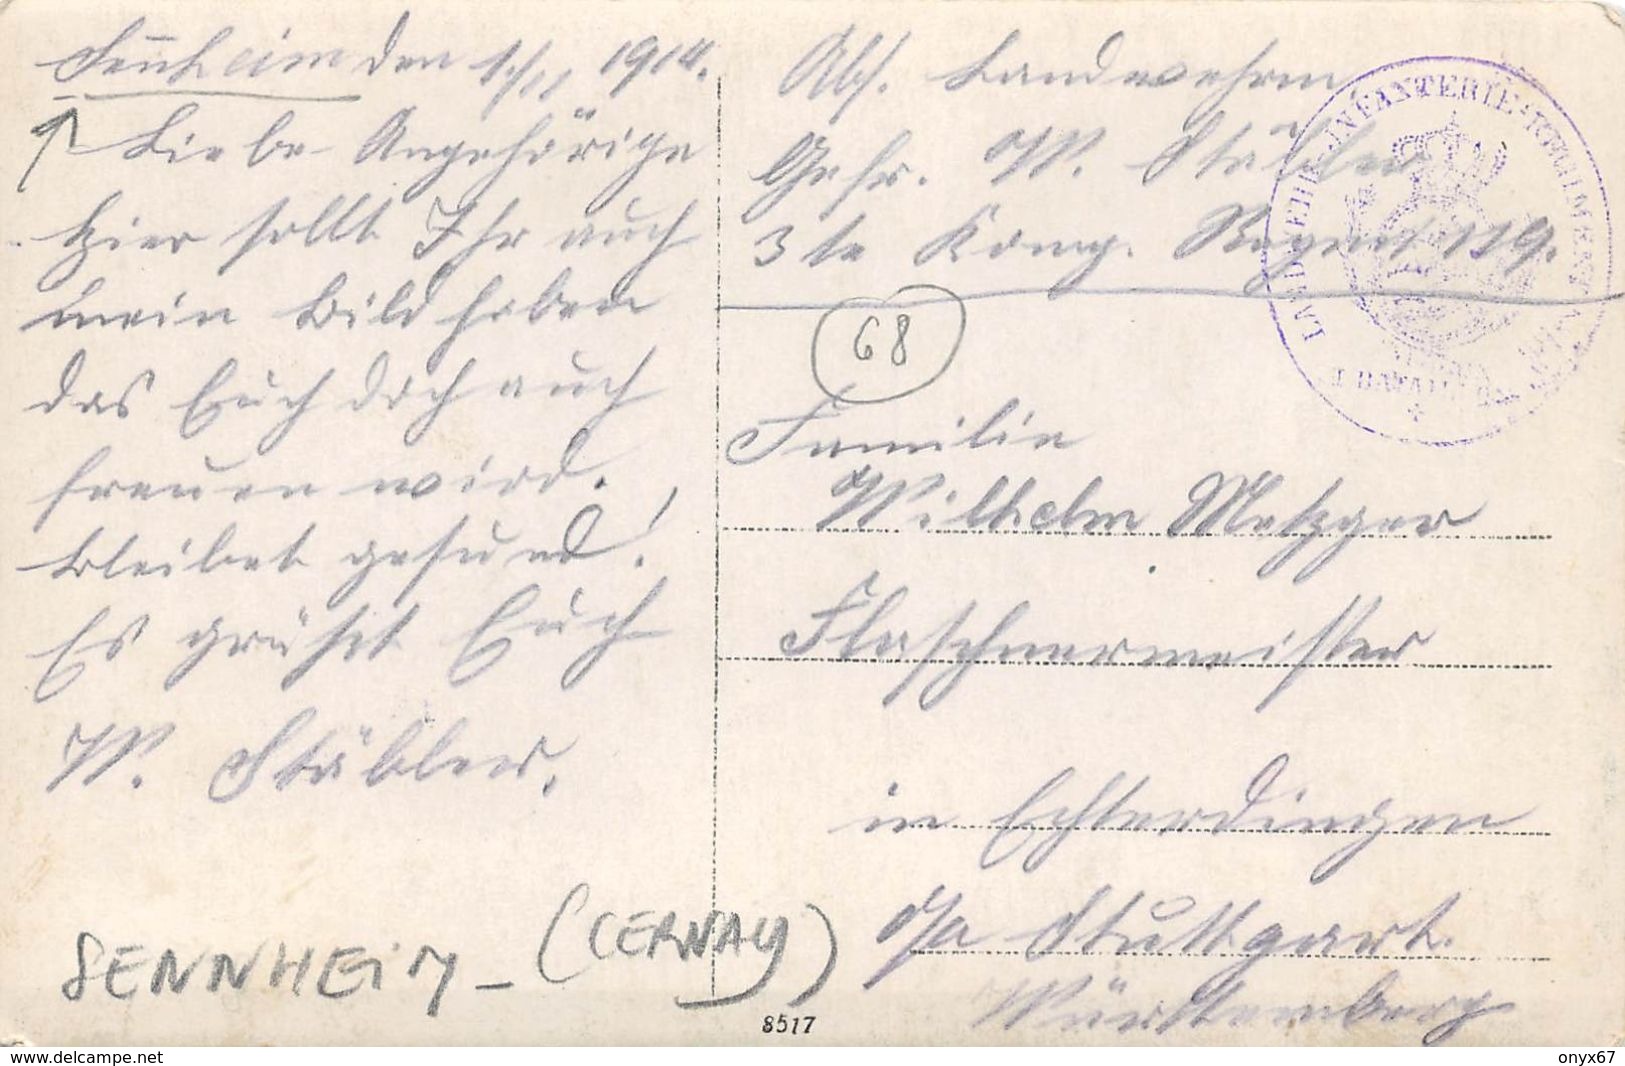 Sennheim den 1/11 1914.
Liebe Angehörige
Hier sollt Ihr auch
mein Bild haben
das Euch doch auch
freuen wird.
Bleibet gesund!
Es grüßt Euch
W. Stäbler.
SENNHEIM - (CERNAY)
Abs. Landwehrm.
Gefr. W. Stäbler
3te Komp. Regmt 119.
LANDWEHR-INFANTERIE-REGIMENT
I. BATAILLON
68
Familie
Wilhelm Metzger
Flaschnermeister
in Echterdingen
o/a Stuttgart.
Württemberg
8517
delcampe.net
onyx67